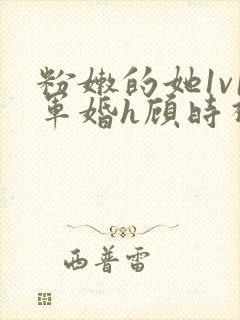 粉嫩的她1v1
军婚h顾时
西普雷